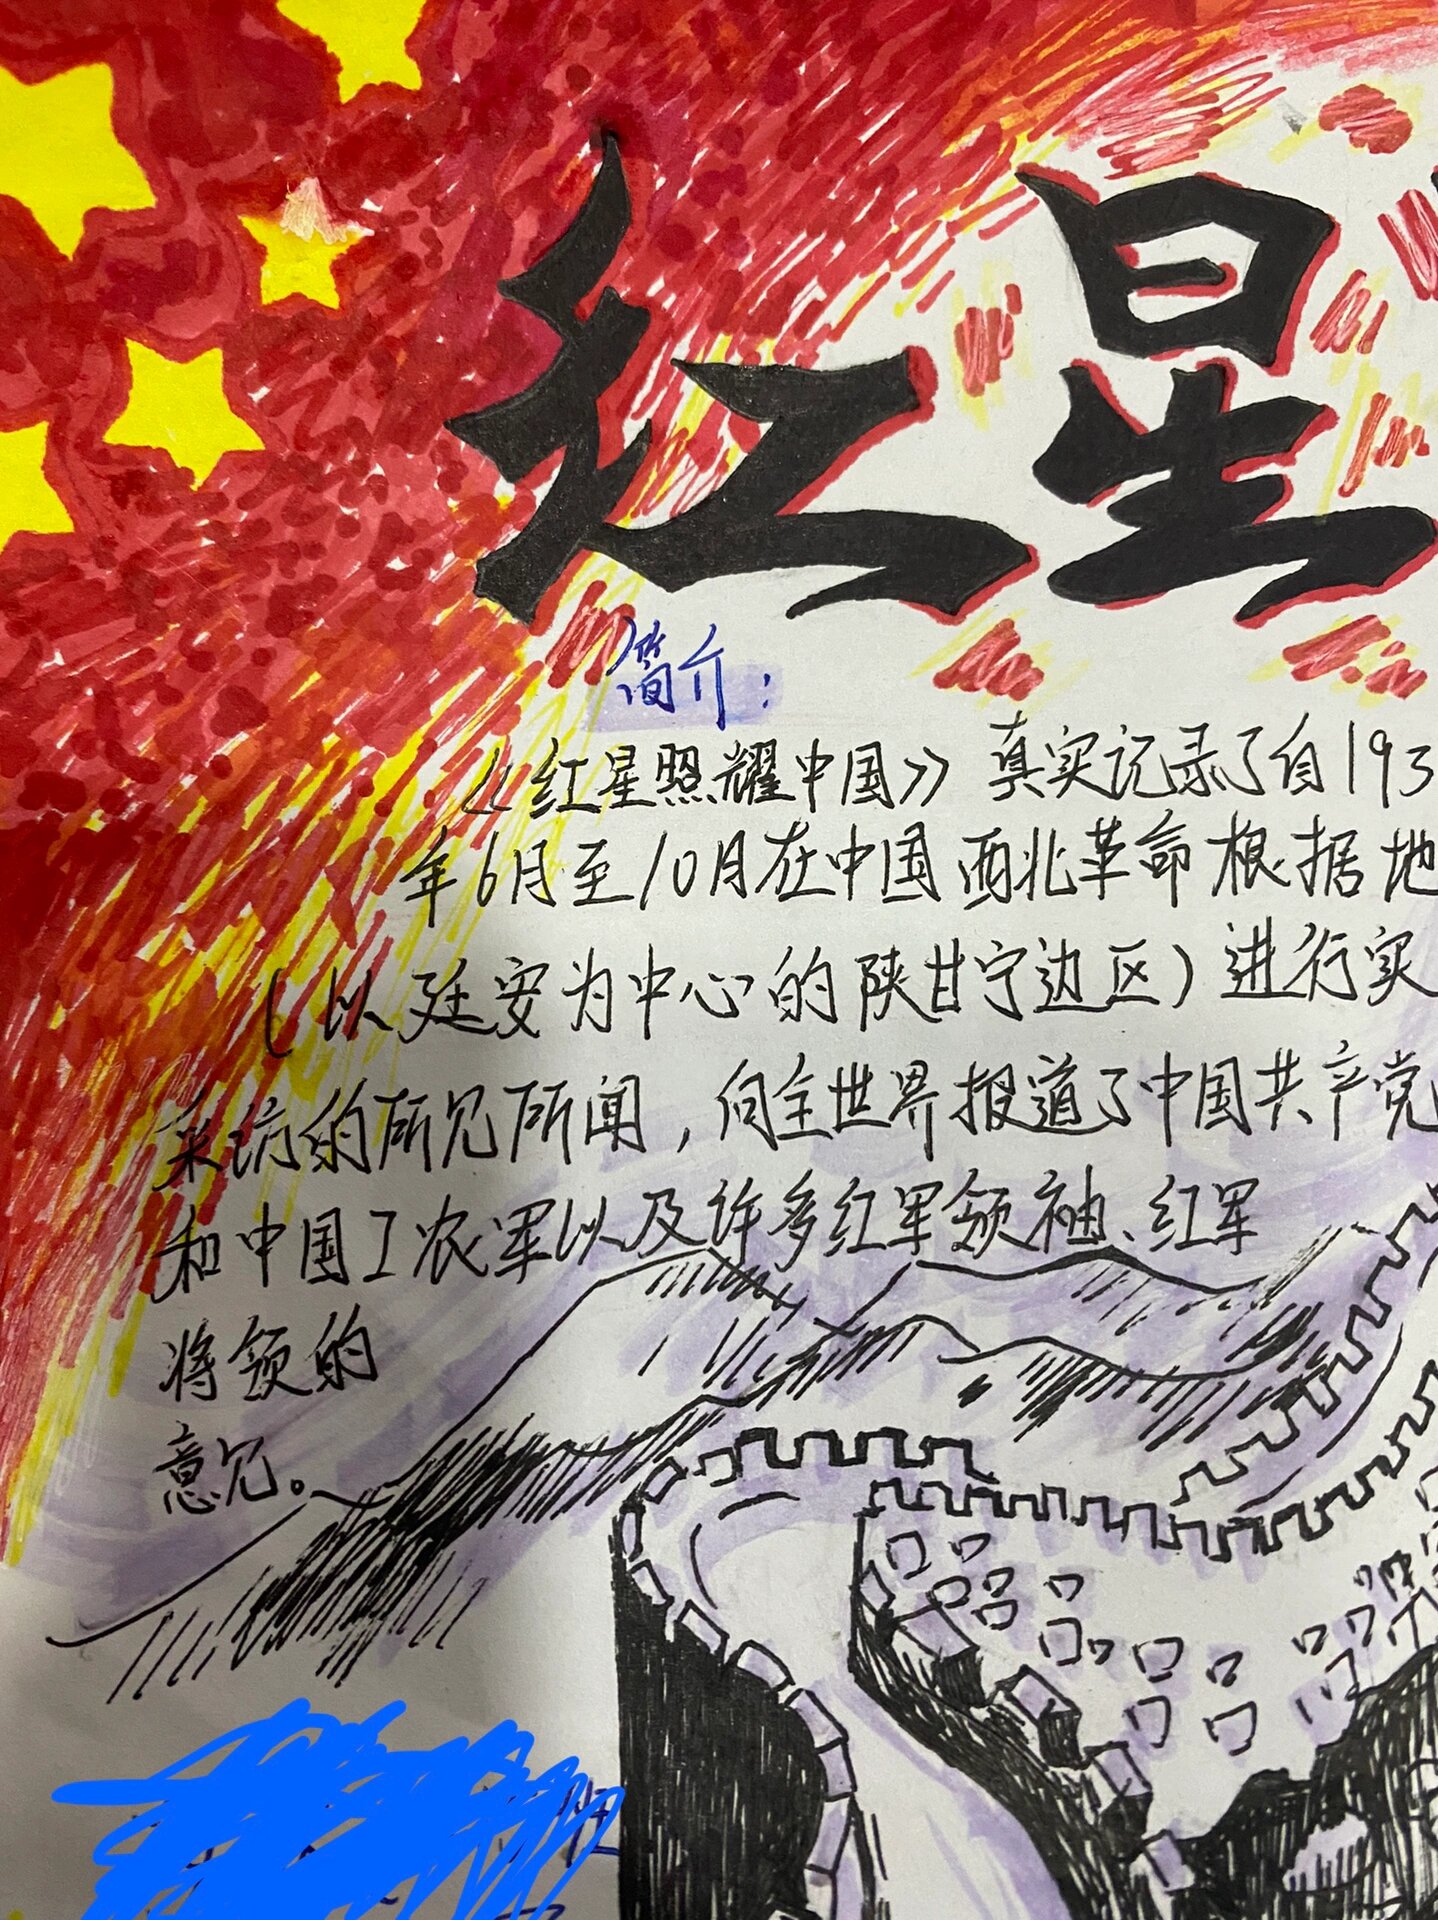 红星
简介：
《红星照耀中国》真实记录了自193
年6月至10月在中国西北革命根据地
（以延安为中心的陕甘宁边区）进行实
采访的所见所闻，向全世界报道了中国共产党
和中国工农军以及许多红军领袖、红军
将领的
意见。